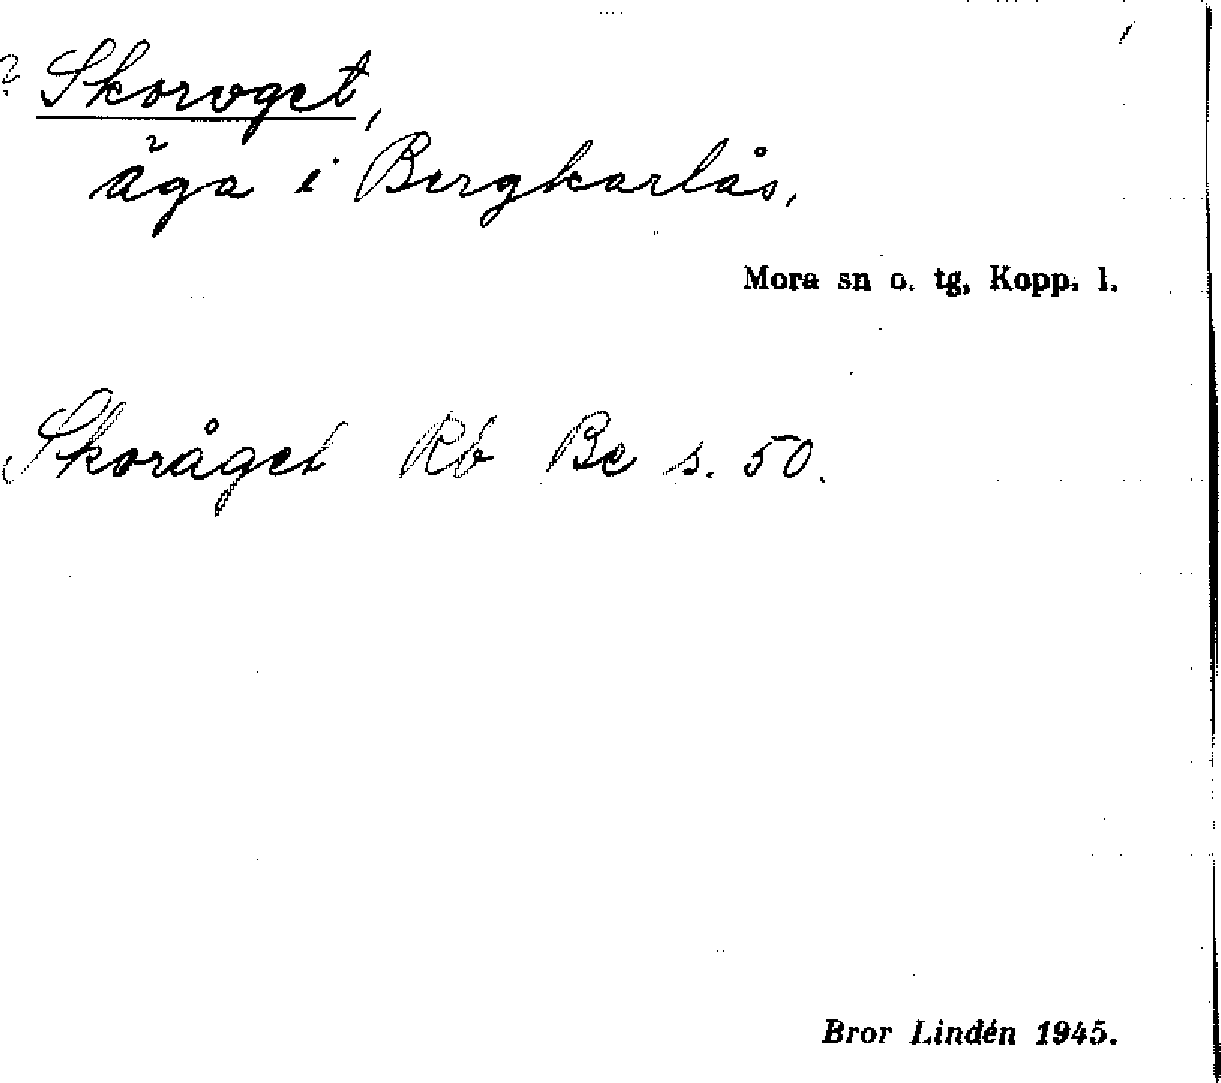 ? Skorvget,
äga i Bergkarlås.
Mora sn o. tg, Kopp. l.
Skoråget Rb Be s. 50.
Bror Lindén 1945.